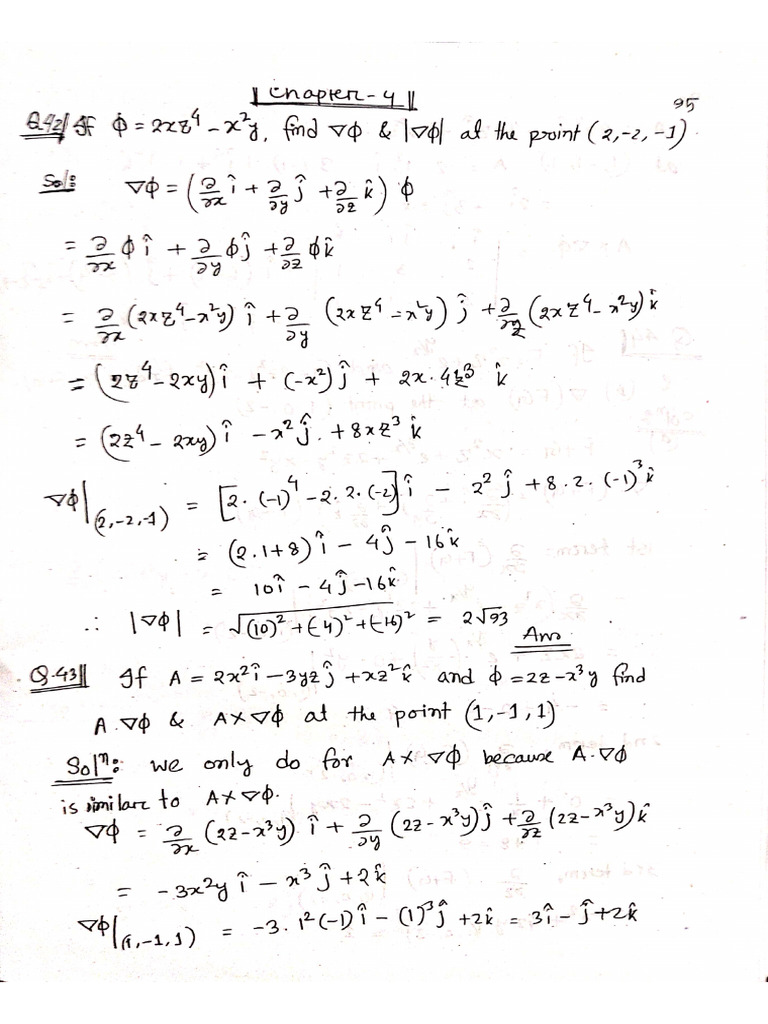 Chapter-4
95
Q.42 If ϕ = 2xz⁴ - x²y, find ∇ϕ & |∇ϕ| at the point (2,-2,-1).
Sol: ∇ϕ = (∂/∂x î + ∂/∂y ĵ + ∂/∂z k̂) ϕ
= ∂/∂x ϕ î + ∂/∂y ϕ ĵ + ∂/∂z ϕ k̂
= ∂/∂x (2xz⁴-x²y) î + ∂/∂y (2xz⁴-x²y) ĵ + ∂/∂z (2xz⁴-x²y) k̂
= (2z⁴-2xy) î + (-x²) ĵ + 2x·4z³ k̂
= (2z⁴-2xy) î - x² ĵ. + 8xz³ k̂
∇ϕ|(2,-2,-1) = [2·(-1)⁴ - 2.2.(-2)] î - 2² ĵ + 8.2.(-1)³ k̂
= (2.1+8) î - 4ĵ - 16k̂
= 10î - 4ĵ - 16k̂
∴ |∇ϕ| = √(10)² + (-4)² + (-16)² = 2√93 Ans
Q.43 If A = 2x²î - 3yzĵ + xz²k̂ and ϕ = 2z - x³y find
A.∇ϕ & A×∇ϕ at the point (1,-1,1)
Solⁿ: we only do for A×∇ϕ because A.∇ϕ
is similar to A×∇ϕ.
∇ϕ = ∂/∂x (2z-x³y) î + ∂/∂y (2z-x³y) ĵ + ∂/∂z (2z-x³y) k̂
= -3x²y î - x³ ĵ + 2k̂
∇ϕ|(1,-1,1) = -3.1²(-1) î - (1)³ ĵ + 2k̂ = 3î - ĵ + 2k̂